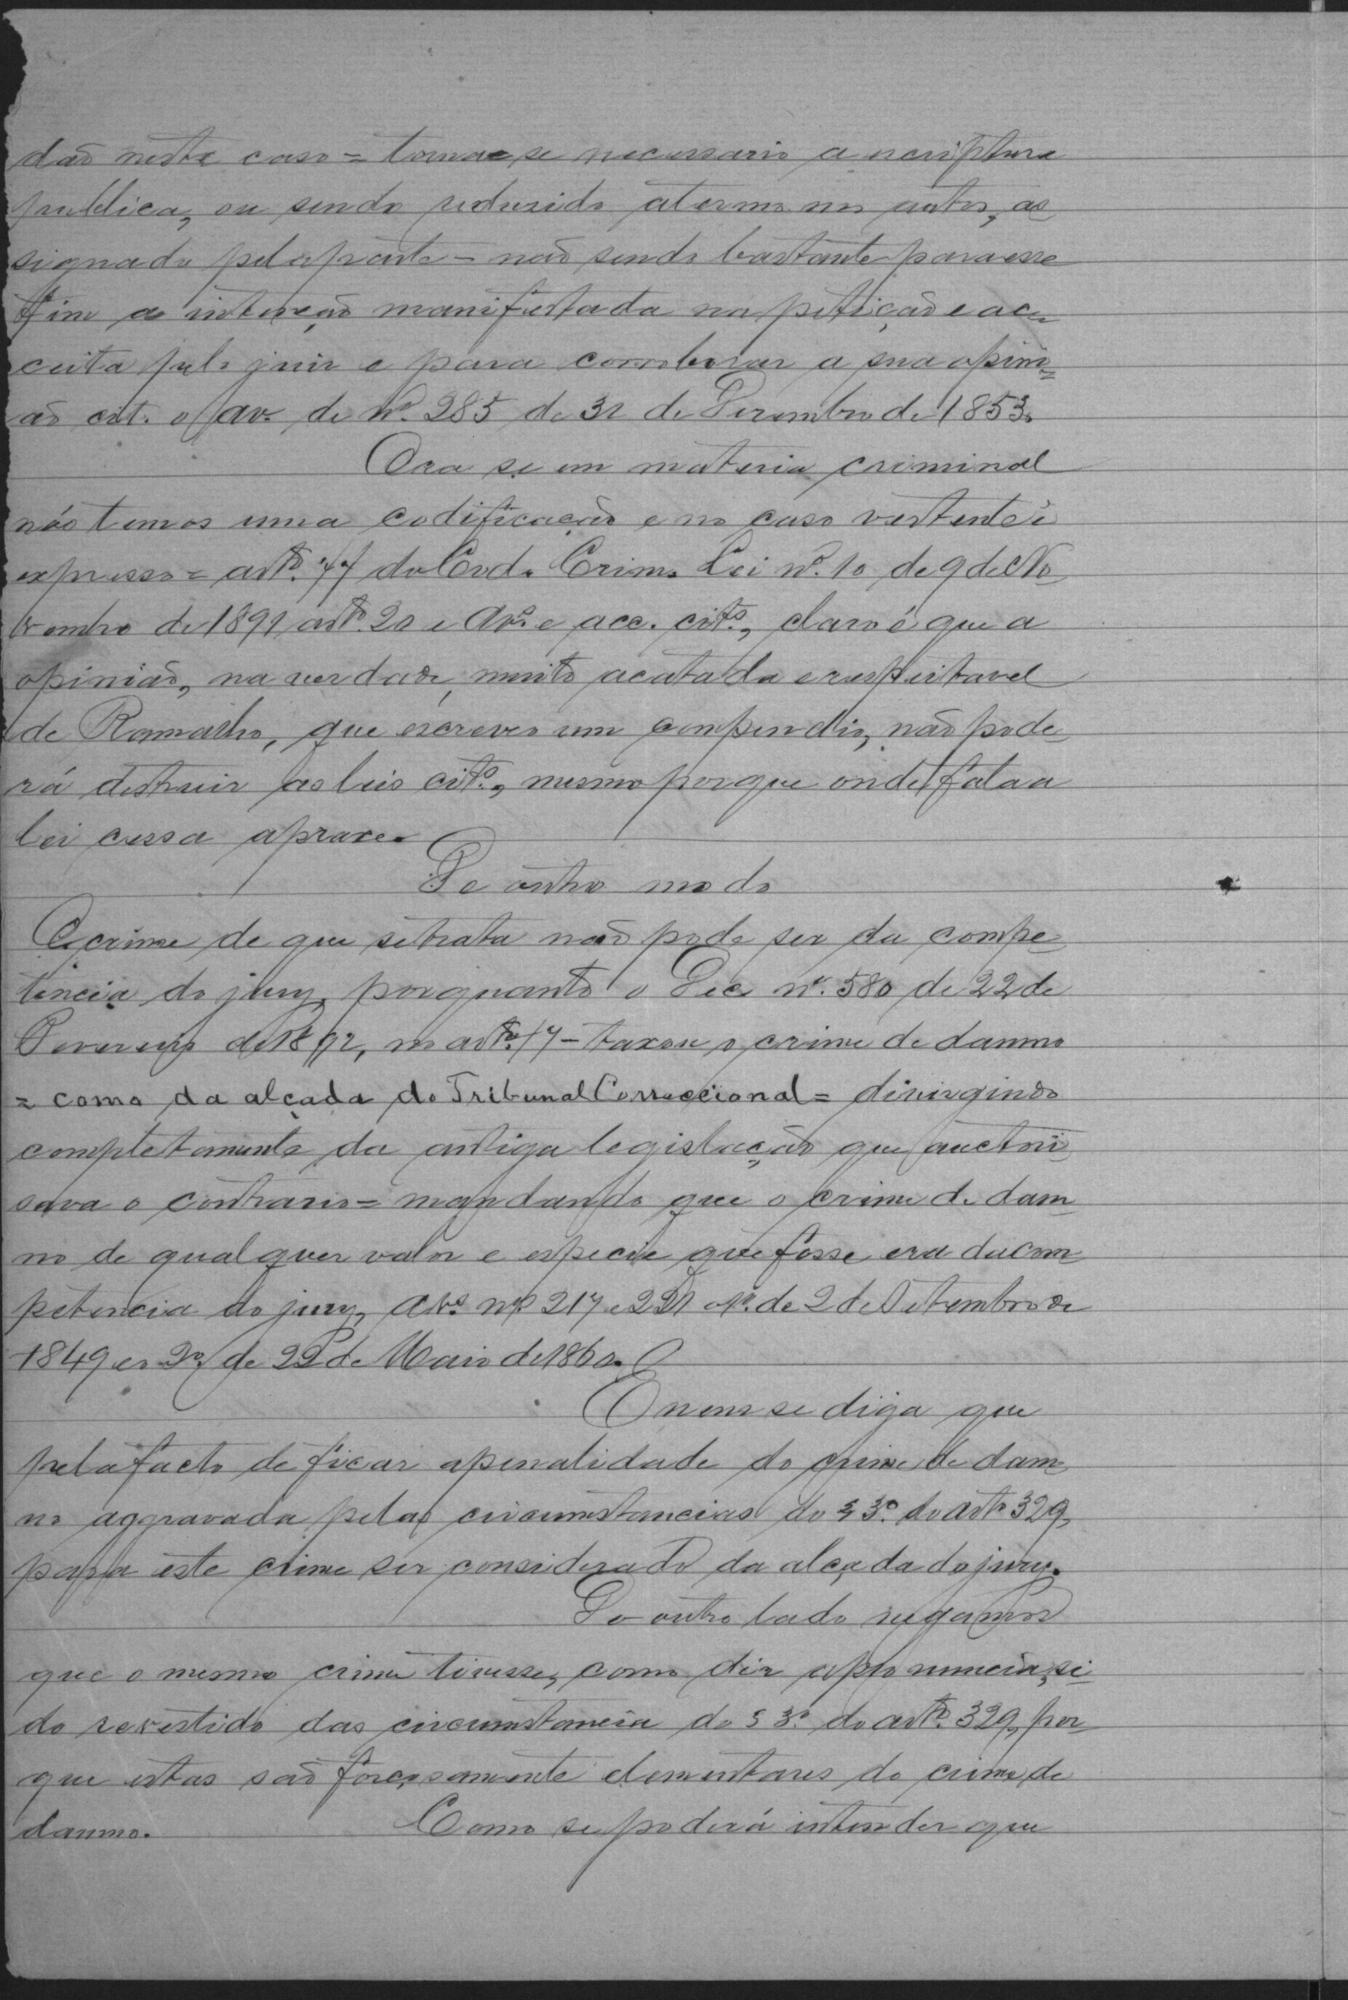 dão neste caso = torna-se necessario a escriptura
publica, ou sendo redusido a termo nos autos, as
signado pela parte - não sendo bastante para esse
fim a intenção manifestada na petição e ac-
ceita pelo juiz e para corroborar a sua opini=
ão cit. o av. de nº 285 de 31 de Dezembro de 1853.
Ora se em materia criminal
nós temos uma codificação e no caso vertente é
expresso = artº. 77 do Cod. Crim. Lei nº. 10 de 9 de No
vembro de 1891 artº. 20 e Avs. e acc. citºs., claro é que a
opinião, na verdade, muito acatada e respeitavel
de Ramalho, que escreveo um compendio, não pode-
rá destruir as leis citºs., mesmo porque onde fala a
lei cessa a praxe.
De outro modo
O crime de que se trata não pode ser da compe-
tencia do jury, porquanto o Dec nº. 580 de 22 de
Fevereiro de 1892, no artº. 17 - taxou o crime de damno
= como da alçada do Tribunal Correccional = divirgindo
completamente da antiga legislação que auctori
sava o contrario = mandando que o crime de dam-
no de qualquer valor e especie que fosse era da com
petencia do jury, Avs. nº 217 e 221 de 2 de Setembro de
1849 e de 22 de Maio de 1860.
E nem se diga que
pelo facto de ficar a penalidade do crime de dam-
no aggravada pelas circumstancias do § 3º. do artº 329,
para este crime ser considerado da alçada do jury.
Do outro lado negamos
que o mesmo crime tivesse, como diz a pronuncia, si-
do revestido das circumstancia do § 3º. do artº. 329, por-
que estas são forçosamente elementares do crime de
damno. Como se poderá intender que